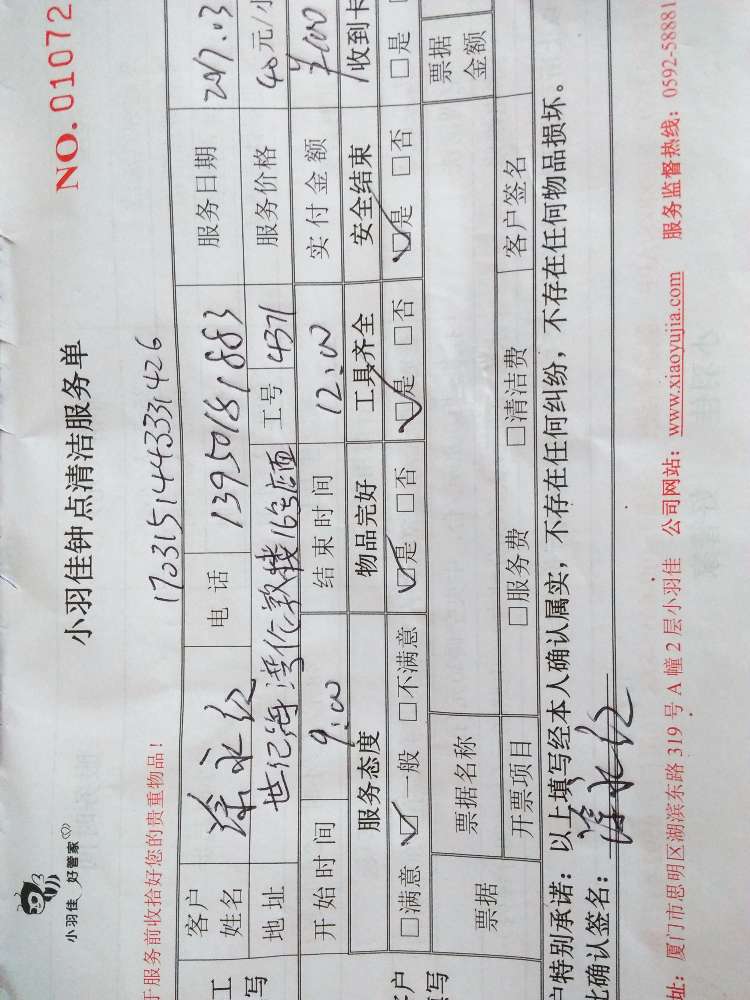 小羽佳 好管家
小羽佳钟点清洁服务单
NO. 01072
于服务前收拾好您的贵重物品!
17031514433331426
客户姓名 徐永红 电话 13950181883 服务日期 2017.03
地址 世纪海湾伦敦楼16号店面 工号 4371 服务价格 40元/小
开始时间 9:00 结束时间 12:00 实付金额
服务态度 物品完好 工具齐全 安全结束 收到卡
□满意 ☑一般 □不满意 ☑是 □否 ☑是 □否 ☑是 □否 □是
票据 票据名称 票据金额
开票项目 □服务费 □清洁费 客户签名
户特别承诺:以上填写经本人确认属实,不存在任何纠纷,不存在任何物品损坏。
此确认签名:徐永红
址:厦门市思明区湖滨东路 319 号 A 幢 2 层小羽佳 公司网站:www.xiaoyujia.com 服务监督热线:0592-58881